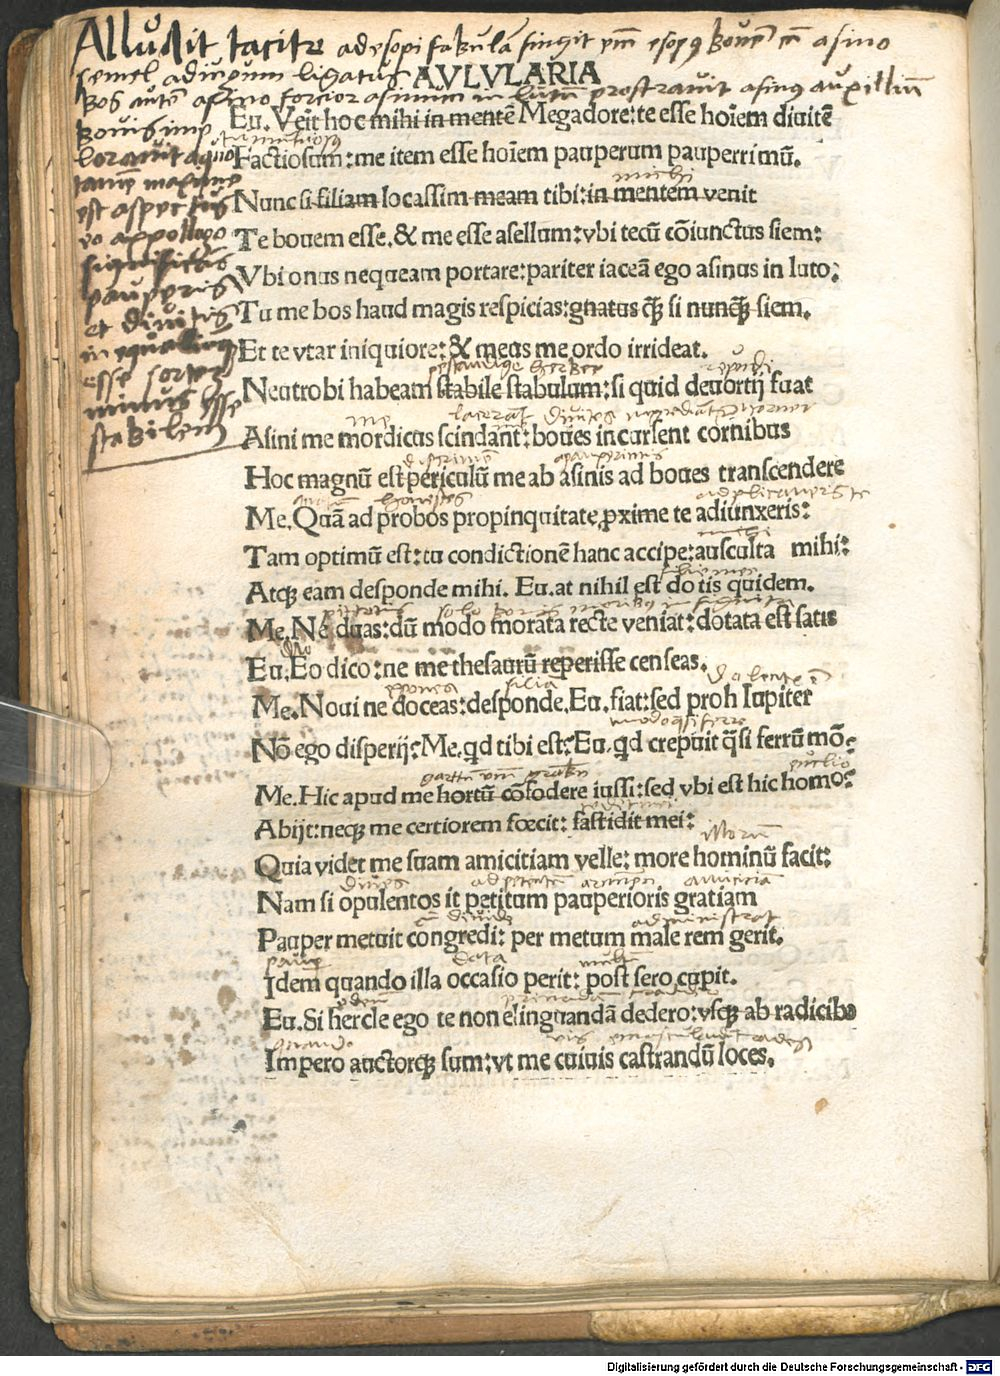 Alludit tacite ad esopi fabulā fingit em̄ esopꝰ bouē cū asino
semel ad inuicum ligatus AVLVLARIA
bos autē asino forcior asinum in lutū prostrauit asinꝰ auxilliū
bouis imp
lorauit a quo
est aspectus
significās
pauperis
et diuitis
inequaliū
esse sortes
minus esse
stabilem
Eu. Veit hoc mihi in mentē Megadore: te esse hoīem diuitē
Factiosum: me item esse hoīem pauperum pauperrimū.
michi
Nunc si filiam locassim meam tibi: in mentem venit
Te bouem esse. & me esse asellum: vbi tecū cōiunctus siem:
Vbi onus nequeam portare: pariter iaceā ego asinus in luto:
Tu me bos haud magis respicias: gnatus q̄ꝫ si nunq̄ꝫ siem.
Et te vtar iniquiore: & meus me ordo irrideat.
Neutrobi habeam stabile stabulum: si quid deuortij fuat
me lacerāt diuites
Asini me mordicus scindant: boues incursent cornibus
Hoc magnū est periculū me ab asinis ad boues transcendere
honestos
Me. Quā ad probos propinquitate ꝓxime te adiunxeris:
mihi
Tam optimū est: tu condictionē hanc accipe: ausculta mihi:
Atqꝫ eam desponde mihi. Eu. at nihil est dotis quidem.
Me. Ne duas: dū modo morata recte veniat: dotata est satis
Eu. Eo dico: ne me thesaurū reperisse censeas.
filiā
Me. Noui ne doceas: desponde. Eu. fiat: sed proh Iupiter
Nō ego disperij: Me. qd tibi est: Eu. qd crepuit q̄si ferrū mō:
euclio
Me. Hic apud me hortū cōfodere iussi: sed vbi est hic homo:
Abijt: neqꝫ me certiorem fœcit: fastidit mei:
illorū
Quia videt me suam amicitiam velle: more hominū facit:
diues amicicia
Nam si opulentos it petitum pauperioris gratiam
administrat
Pauper metuit congredi: per metum male rem gerit.
data
Idem quando illa occasio perit: post sero cupit.
Eu. Si hercle ego te non elinguandā dedero: vsqꝫ ab radicibꝰ
Impero auctorqꝫ sum: vt me cuiuis castrandū loces.
Digitalisierung gefördert durch die Deutsche Forschungsgemeinschaft - DFG